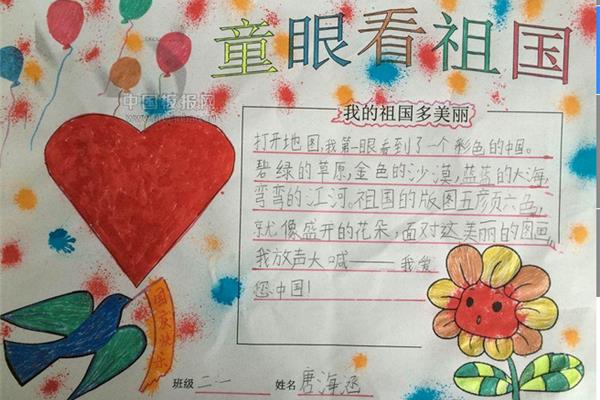 童眼看祖国
中国搜报网
我的祖国多美丽
打开地图,我第一眼看到了一个彩色的中国。
碧绿的草原,金色的沙漠,蓝蓝的大海,
弯弯的江河。祖国的版图五颜六色,
就像盛开的花朵,面对这美丽的图画,
我放声大喊——我爱
您中国!
国庆快乐
班级 二一 姓名 唐海丞